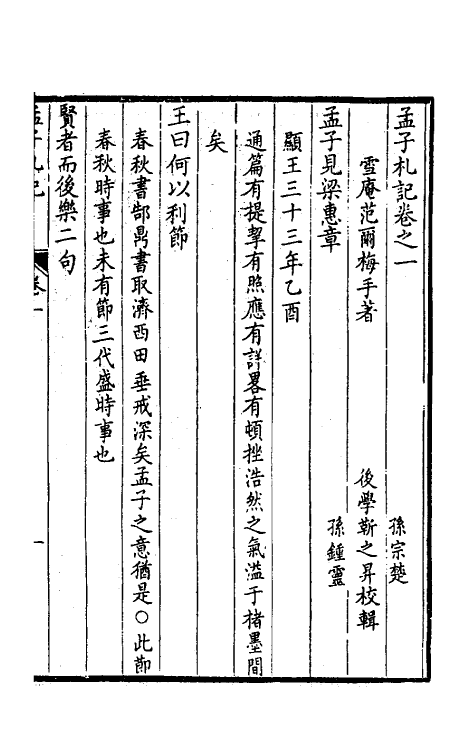 孟子札記卷之一
孫宗楚
雪庵范爾梅手著 後學靳之昇校輯
孫鍾靈
孟子見梁惠章
顯王三十三年乙酉
通篇有提挈有照應有詳畧有頓挫浩然之氣溢于楮墨間
矣
王曰何以利節
春秋書郜鼎書取濟西田垂戒深矣孟子之意猶是○此節
春秋時事也未有節三代盛時事也
賢者而後樂二句
孟子札記 卷一 一